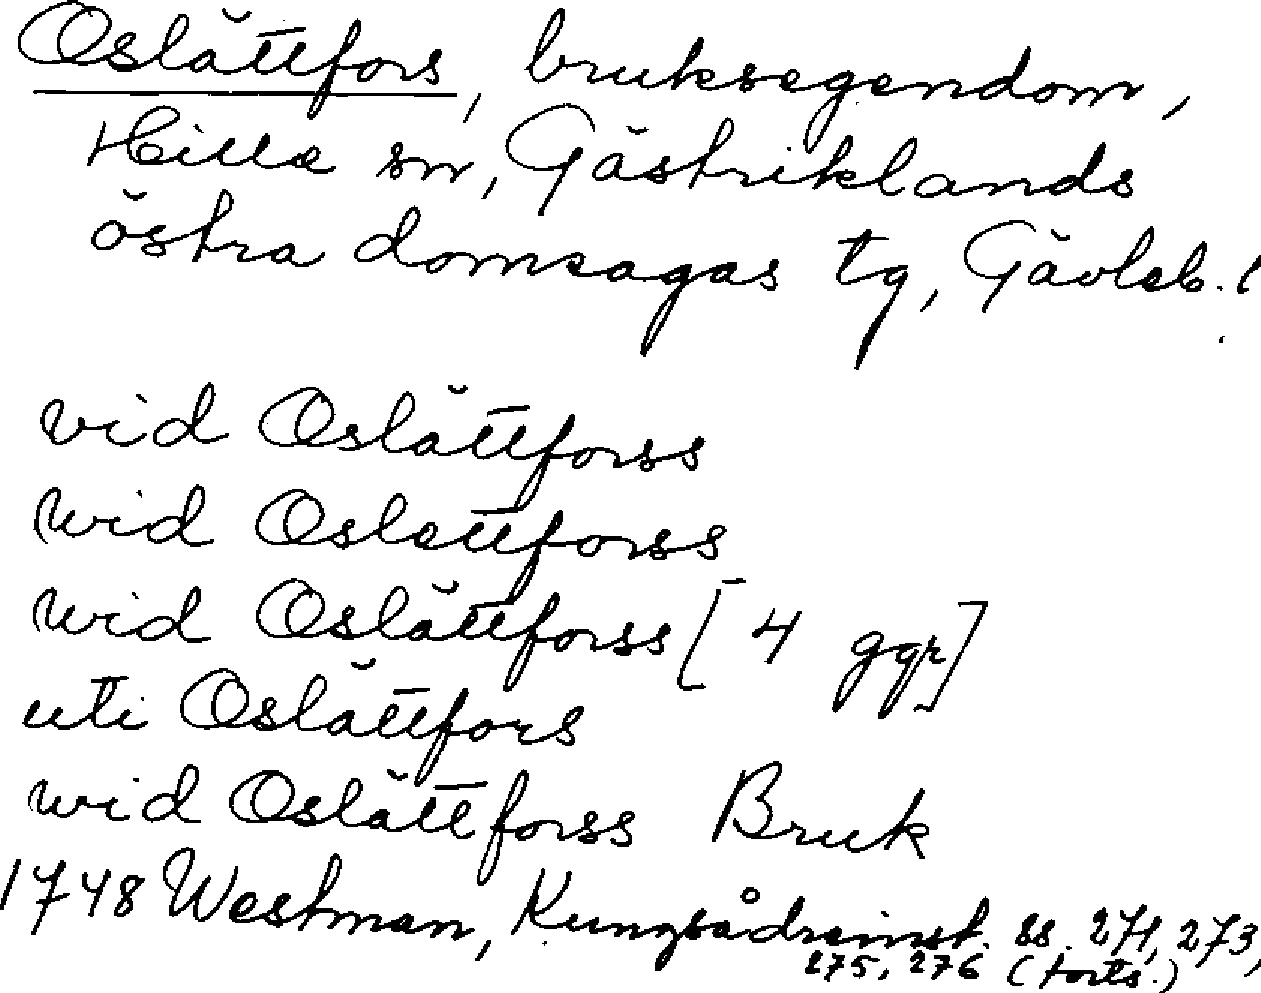 Oslättfors, bruksegendom,
Hille sn, Gästriklands
östra domsagas tg, Gävleb. l
vid Oslättforss
wid Oslettforss
wid Oslättforss [4 ggr]
uti Oslättfors
wid Oslättforss Bruk
1748 Westman, Kungsådreinst. ss. 271, 273,
275, 276 (forts.)